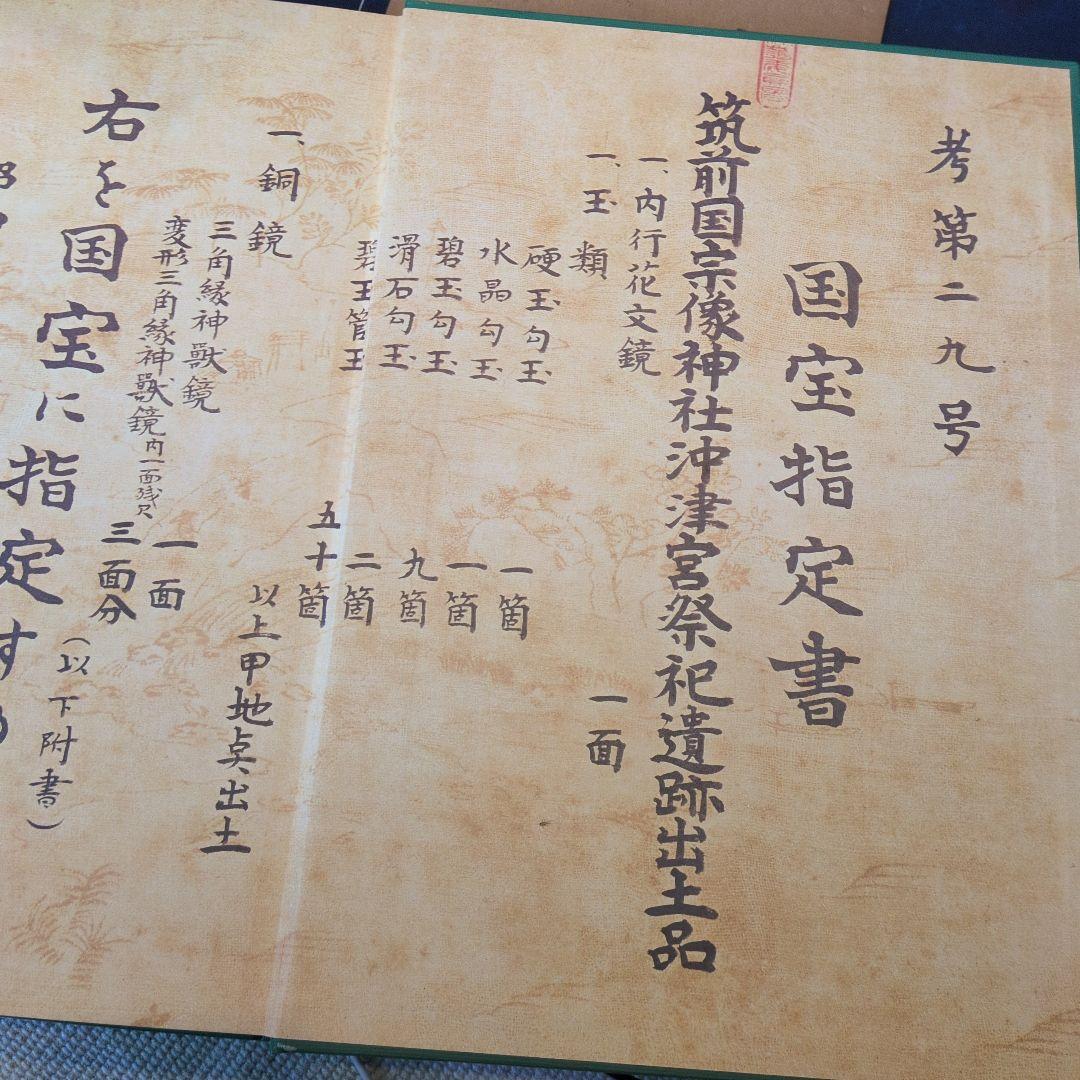 考第二九号
国宝指定書
筑前国宗像神社沖津宮祭祀遺跡出土品
一、内行花文鏡 一面
一、玉類
硬玉勾玉 一箇
水晶勾玉 一箇
碧玉勾玉 九箇
滑石勾玉 二箇
碧玉管玉 五十箇
以上甲地点出土
一、銅鏡
三角縁神獣鏡 一面
変形三角縁神獣鏡内一面残欠 三面分
(以下附書)
右を国宝に指定する